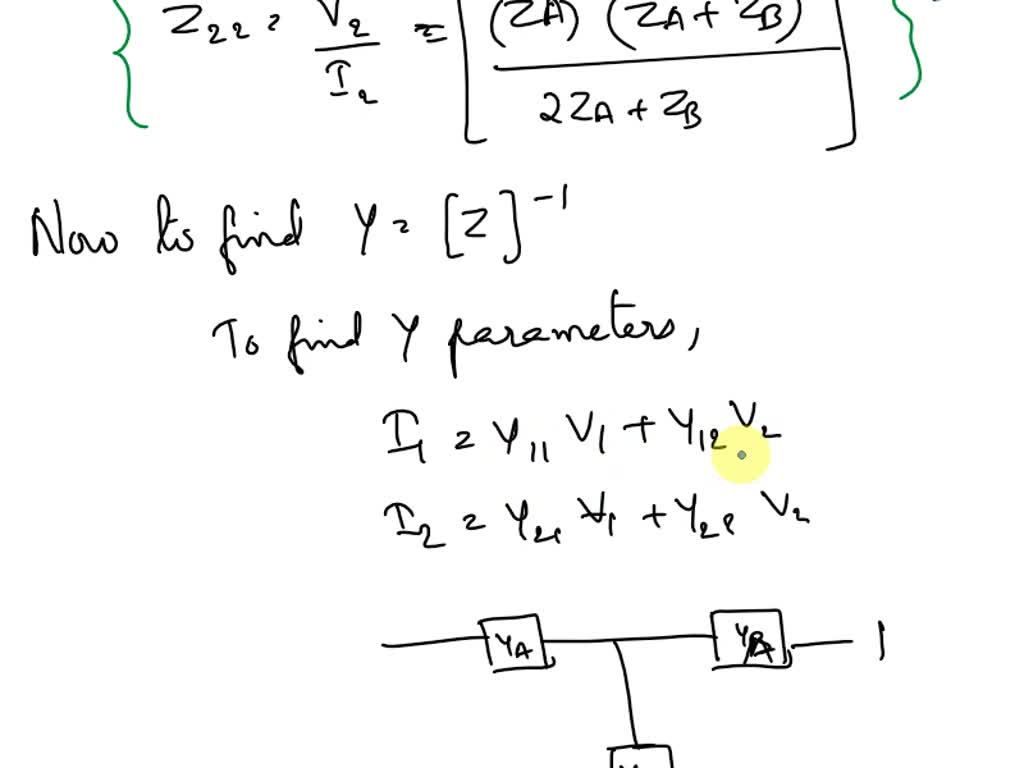 Z22 = V2 / I2 = [ (ZA) (ZA + ZB) / 2ZA + ZB ]
Now to find Y = [Z]^-1
To find Y parameters,
I1 = Y11 V1 + Y12 V2
I2 = Y21 V1 + Y22 V2
YA